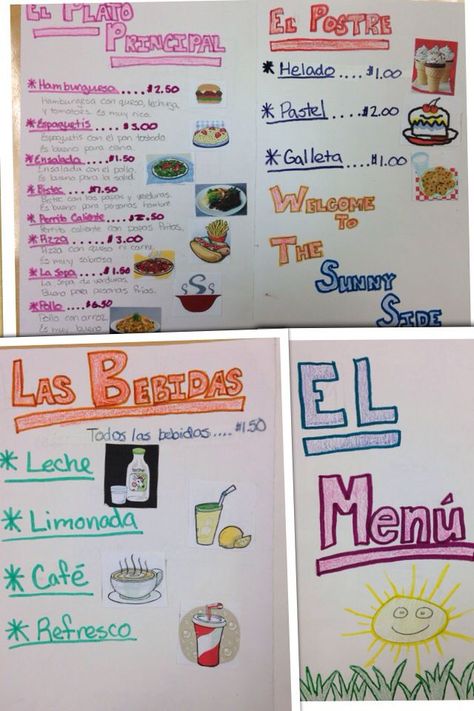 EL PLATO
PRINCIPAL
* Hamburguesa .... $2.50
Hamburguesa con queso, lechuga
y tomates. Es muy rica.
* Espaguetis ..... $3.00
Espaguetis con el pan tostada
Es bueno para cena.
* Ensalada .... $1.50
Ensalada con el pollo.
Es bueno para la salud.
* Bistec .... $7.50
Bistec con las papas y verduras.
Es bueno para personas hambre.
* Perrito Caliente .... $2.50
Perrito caliente con papas fritas.
* Pizza ...... $3.00
Pizza con queso ni carne.
Es muy sabrosa
* La Sopa .... $1.50
La Sopa de verduras
Bueno para personas frías.
* Pollo .... $6.50
Pollo con arroz.
Es muy bueno
EL POSTRE
* Helado .... $1.00
* Pastel .... $2.00
* Galleta .... $1.00
WELCOME
TO
THE
SUNNY
SIDE
LAS BEBIDAS
Todos las bebidas .... $1.50
* Leche
* Limonada
* Café
* Refresco
EL
Menú